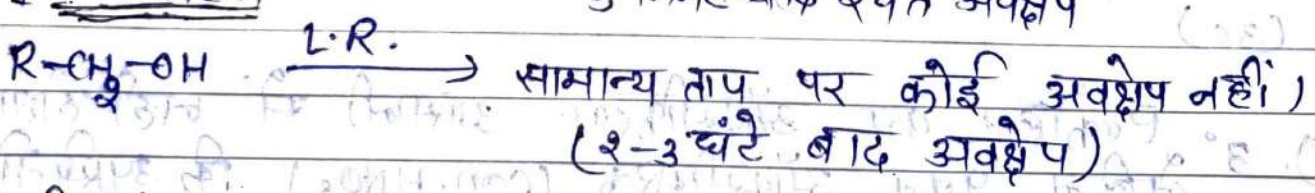 श्वेत अवक्षेप
R-CH₂-OH L.R. → सामान्य ताप पर कोई अवक्षेप नहीं।
(2-3 घंटे बाद अवक्षेप)